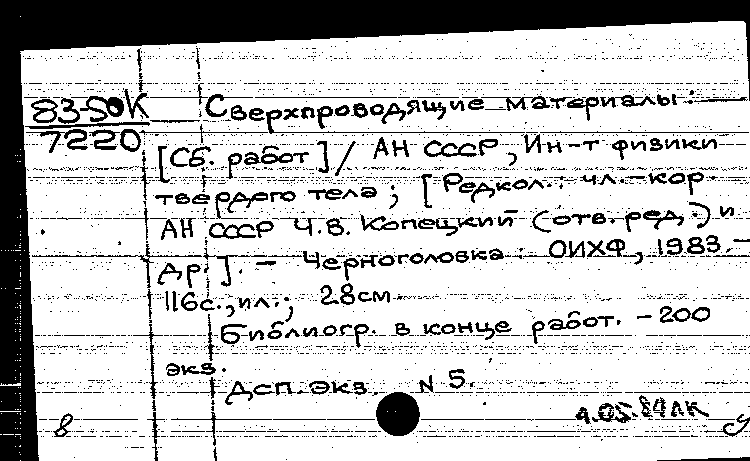 83-5ОК
7220
Сверхпроводящие материалы:
[Сб. работ] / АН СССР, Ин-т физики
твердого тела; [Редкол.: чл.-кор.
АН СССР Ч.В. Копецкий (отв. ред.) и
др.]. - Черноголовка: ОИХФ, 1983.-
116с., ил.; 28см.
Библиогр. в конце работ. - 200
экз.
Дсп. Экз. N 5.
8